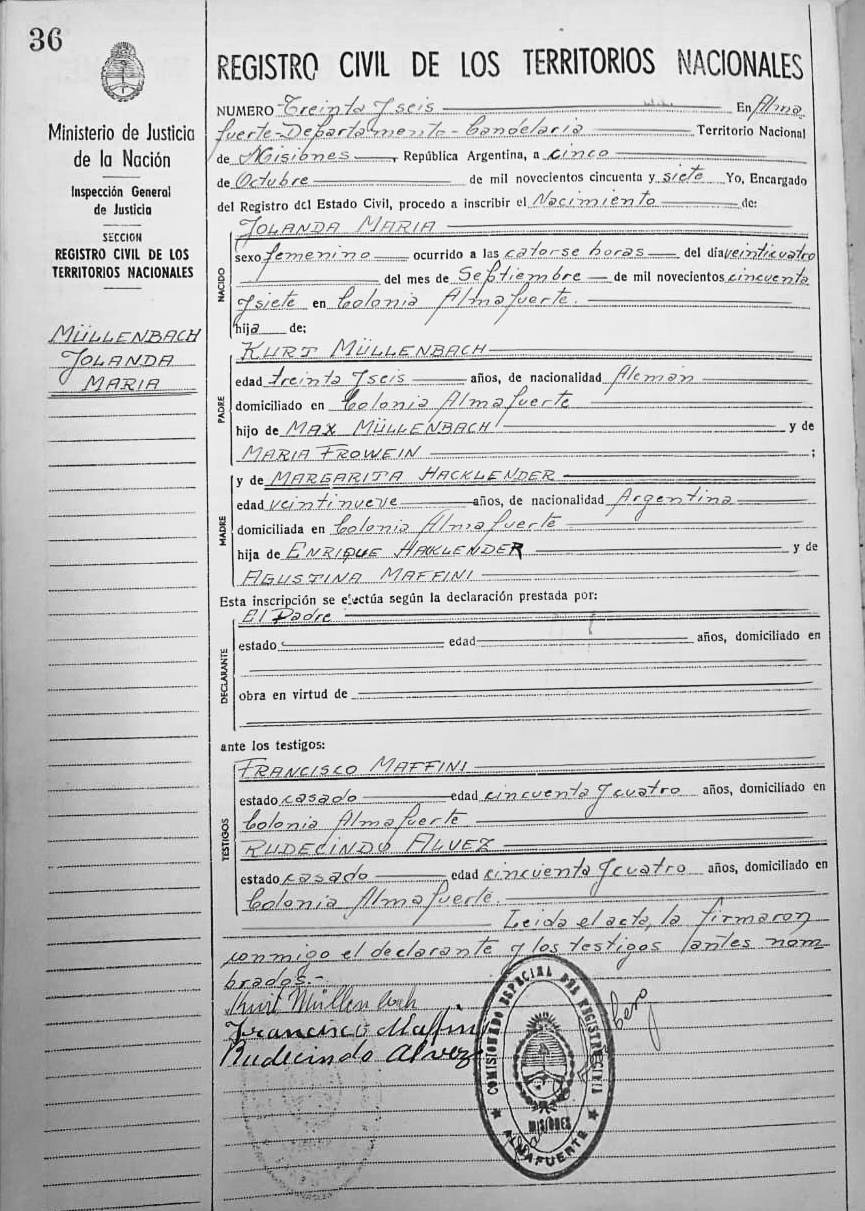 36
Ministerio de Justicia
de la Nación
Inspección General
de Justicia
SECCION
REGISTRO CIVIL DE LOS
TERRITORIOS NACIONALES
MÜLLENBACH
JOLANDA
MARIA
REGISTRO CIVIL DE LOS TERRITORIOS NACIONALES
NUMERO Treinta y seis En Alma
fuerte-Departamento-Candelaria Territorio Nacional
de Misiones, República Argentina, a cinco
de Octubre de mil novecientos cincuenta y siete Yo, Encargado
del Registro del Estado Civil, procedo a inscribir el Nacimiento de:
JOLANDA MARIA
NACIDO
sexo femenino ocurrido a las catorse horas del día veinticuatro
del mes de Septiembre de mil novecientos cincuenta
y siete en Colonia Almafuerte.
hija de:
KURT MÜLLENBACH
PADRE
edad treinta y seis años, de nacionalidad Alemán
domiciliado en Colonia Almafuerte
hijo de MAX MÜLLENBACH y de
MARIA FROWEIN ;
y de MARGARITA HACKLENDER
MADRE
edad veintinueve años, de nacionalidad Argentina
domiciliada en Colonia Almafuerte
hija de ENRIQUE HACKLENDER y de
AGUSTINA MAFFINI
Esta inscripción se efectúa según la declaración prestada por:
El Padre
DECLARANTE
estado edad años, domiciliado en
obra en virtud de
ante los testigos:
FRANCISCO MAFFINI
TESTIGOS
estado casado edad cincuenta y cuatro años, domiciliado en
Colonia Almafuerte
RUDECINDO ALVEZ
estado casado edad cincuenta y cuatro años, domiciliado en
Colonia Almafuerte.
Leida el acta, la firmaron
conmigo el declarante y los testigos antes nom
brados.-
Kurt Müllenbach
Francisco Maffini
Rudecindo Alvez
COMISIONADO ESPECIAL DEL REGISTRO CIVIL
MISIONES
ALMAFUERTE